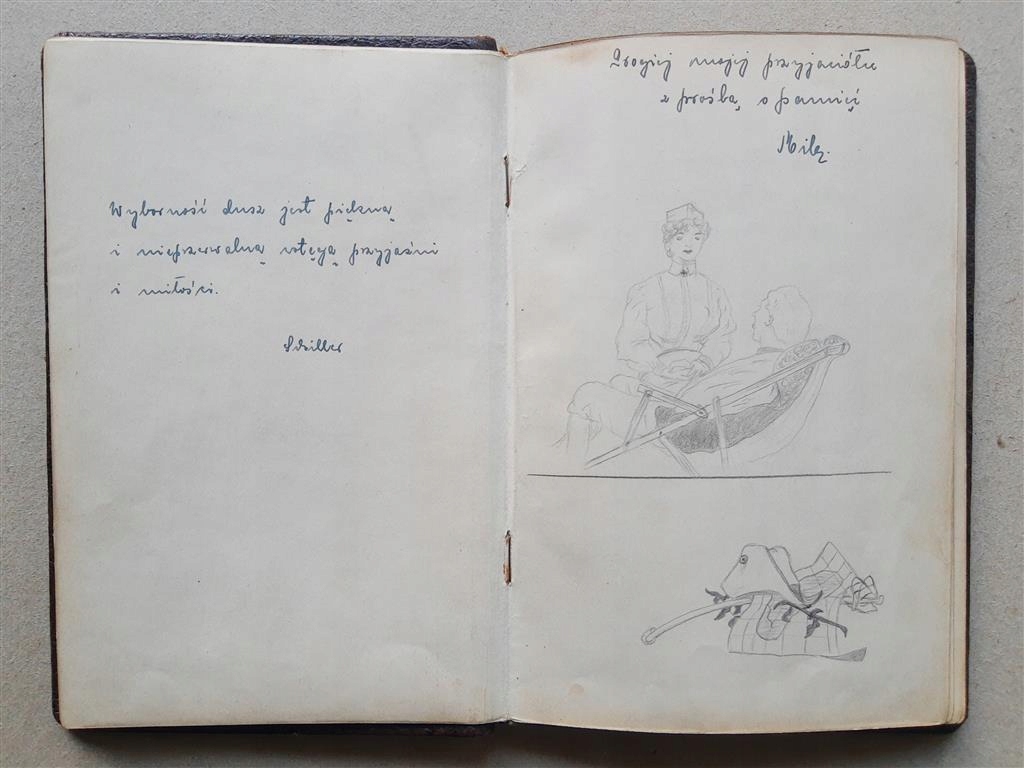 Wyborność dusz jest piękną
i nieprzerwalną wstęgą przyjaźni
i miłości.
Schiller
Drogiej mojej przyjaciółce
z prośbą o pamięć